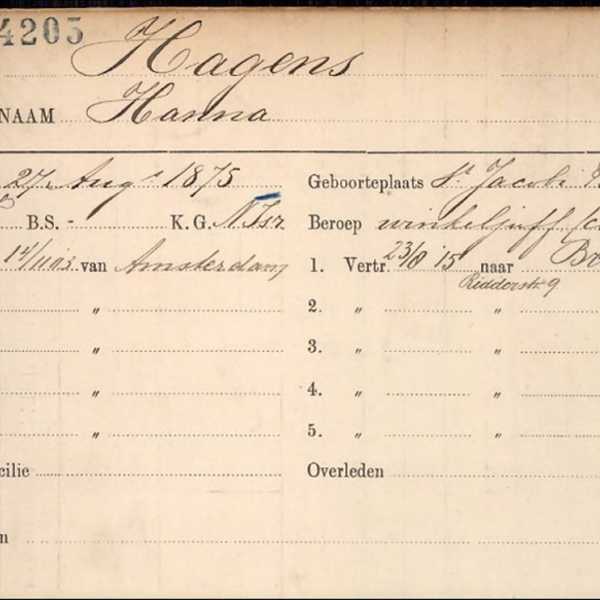 4205
Hagens
NAAM Hanna
27 Augs 1875 Geboorteplaats St Jacobi
B.S. - K.G. N.Isr Beroep winkeljuff
14/11 03 van Amsterdam 1. Vertr. 23/8 '15 naar
Ridderstr. 9
" 2. " "
" 3. " "
" 4. " "
" 5. " "
cilie Overleden
n